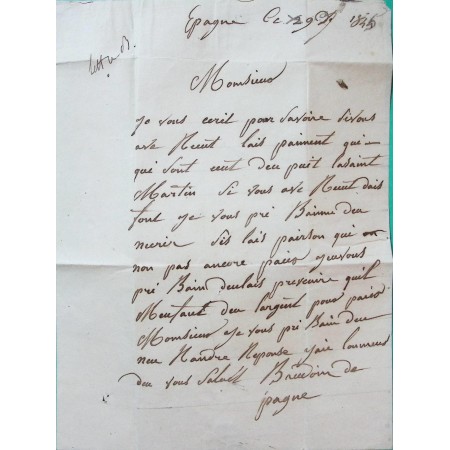 Epagne Ce 29 1845
Monsieur
Je vous ecrit pour savoire si vous
ave Reeut lais paiment qui
qui sont eut deu puit la saint
Martin si vous ave Reeut dais
font Je vous pri Bainne deu
mecrir sis lais pairson qui on
non pas ancore paiés Jeu vous
pri Bain deu lais prevenire quil
Meufaut deu largent pour paié
Monsieur Je vous pri Bain deu
meu Randre Reponse Jaie lonneus
deu vous Salué Baudoin de
pagne